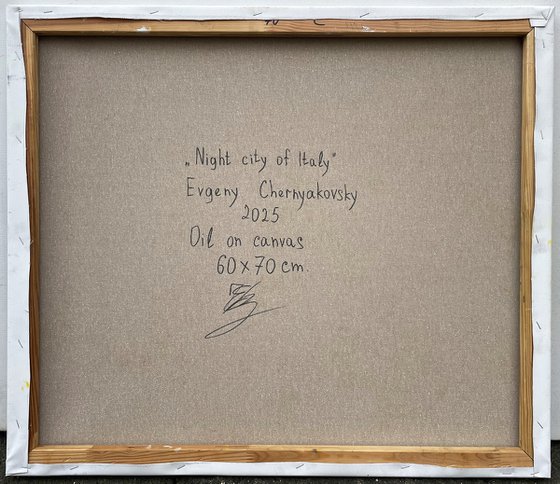 „Night city of Italy"
Evgeny Chernyakovsky
2025
Oil on canvas
60x70 cm.